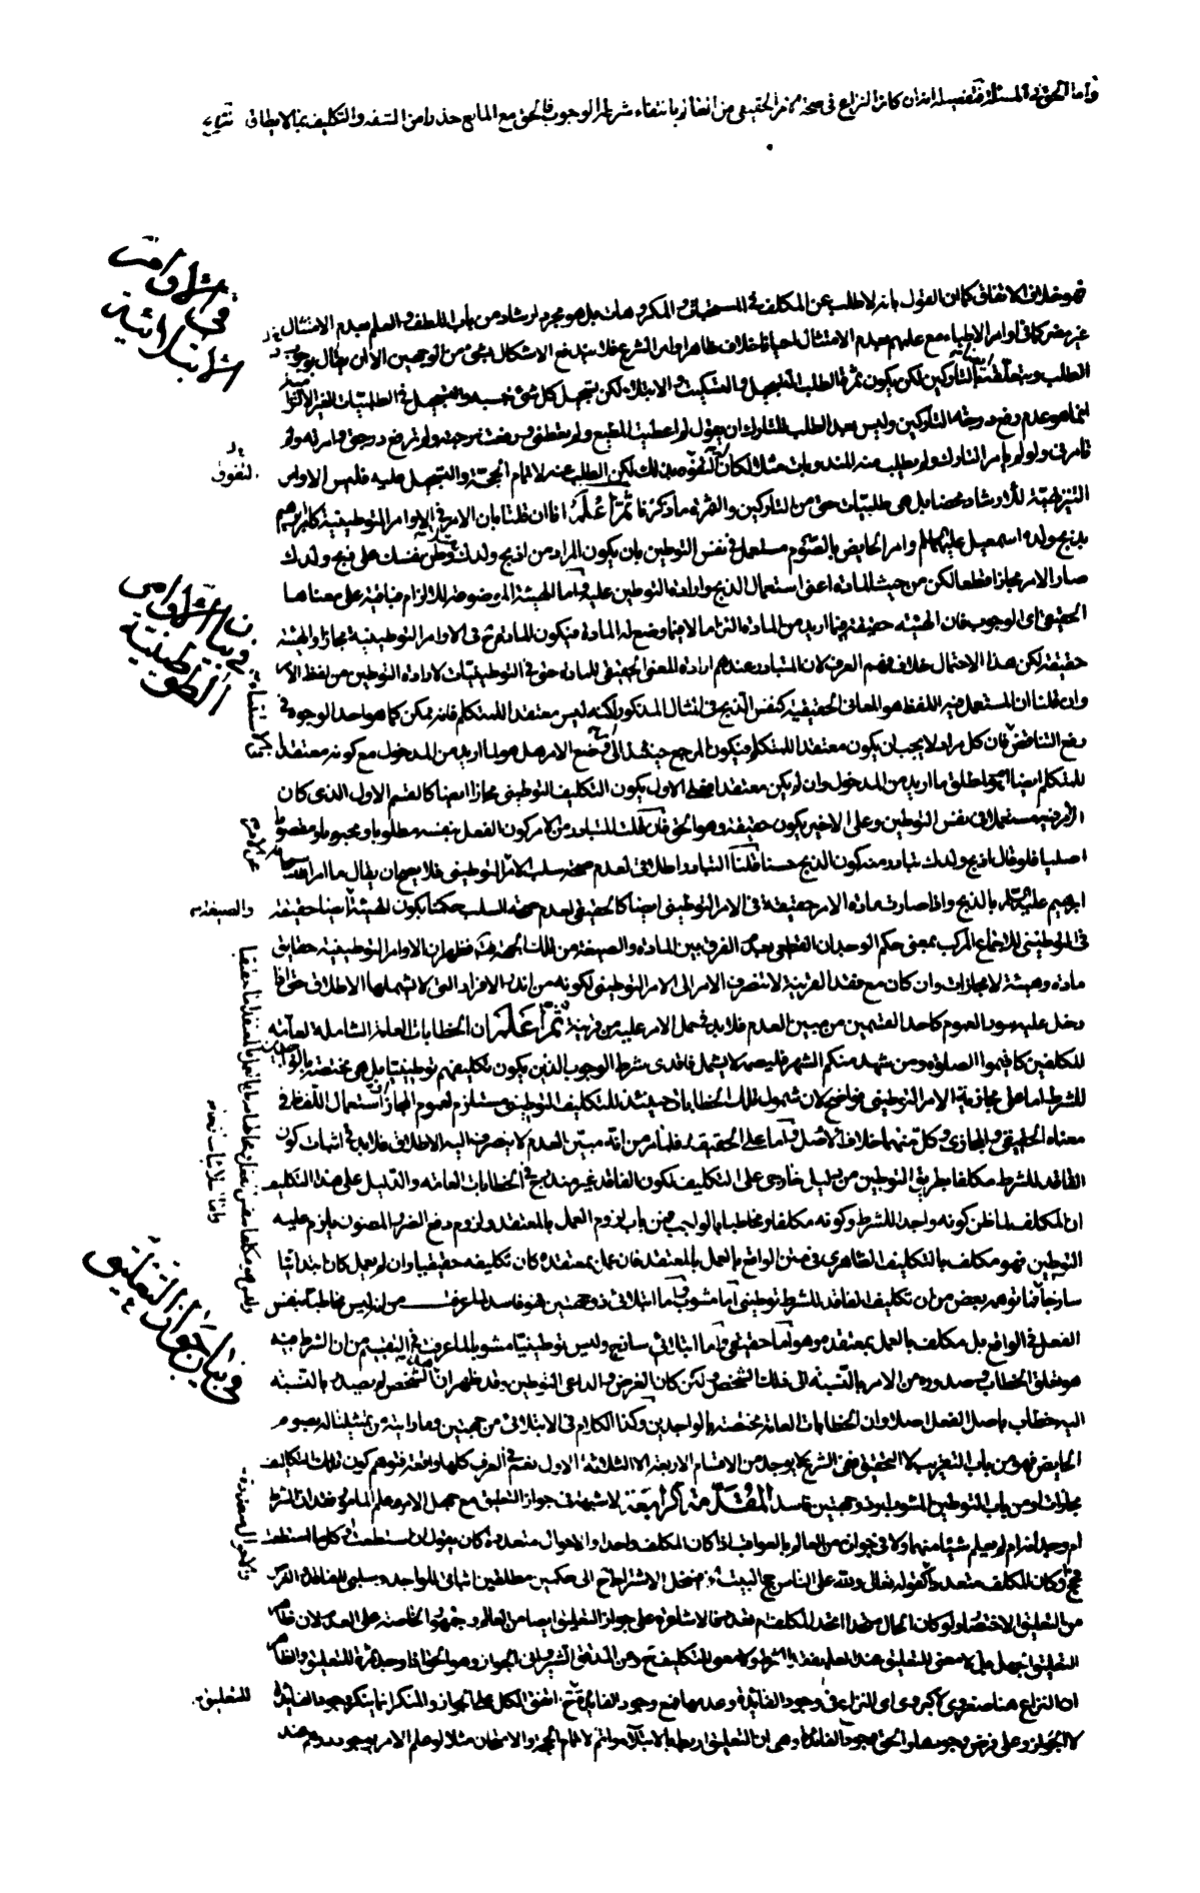 واما الحق في المسئلة فتفصيله انه ان كان النزاع في صحة الامر الحقيقي من العالم بانتفاء شرط الوجوب فالحق مع المانع حذرا من السفه والتكليف بما لا يطاق
فهو خلاف الاتفاق كما ان القول بانه لا طلب عن المكلف في المستحبات والمكروهات بل هو مجرد ارشاد من باب اللطف والعلم بعدم الامتثال
غير مضر كما في اوامر الاطباء مع علمهم بعدم الامتثال احيانا خلاف ظاهر اوامر الشرع فلا يندفع الاشكال بشئ من الوجهين الا ان يقال بوجود
الطلب وبتعلقه بالتاركين لكن يكون ثمرة الطلب التسجيل والتبكيت والابتلاء لكن تسجيل كل شئ بحسبه والتسجيل في الطلبيات الغير الالزامية
انما هو عدم رفع درجة التاركين وليس بعد الطلب للتارك ان يقول لم اعطيت المطيع ولم تعطني ورفعت درجته ولم ترفع درجتي وامرته ولم
تامرني ولو لم يامر التارك ولم يطلب منه المندوبات مثلا لكان له التفوه بذلك لكن الطلب عنه لاتمام الحجة والتسجيل عليه فليس الاوامر
التنزيهية للارشاد محضا بل هي طلبيات حتى من التاركين والثمرة ما ذكرنا ثم اعلم انا ان قلنا بان الامر في الاوامر التوطينية كامر ابراهيم
بذبح ولده اسمعيل عليهما السلم وامر الحايض بالصوم مستعمل في نفس التوطين بان يكون المراد من اذبح ولدك وطن نفسك على ذبح ولدك
صار الامر مجازا قطعا لكن من حيث المادة اعني استعمال الذبح وارادة التوطين عليه واما الهيئة الموضوعة للالزام فباقية على معناها
الحقيقي اي الوجوب فان الهيئة حقيقة فيما اريد من المادة التزاما لا فيما وضع له المادة فيكون المادة في الاوامر التوطينية مجازا والهيئة
حقيقة لكن هذا الاحتمال خلاف فهم العرف لان المتبادر عندهم ارادة المعنى الحقيقي للمادة حتى في التوطينيات لا ارادة التوطين من لفظ الامر
وان قلنا ان المستعمل فيه اللفظ هو المعاني الحقيقية كنفس الذبح في المثال المذكور لكنه ليس معتقد المتكلم فانه يمكن كما هو احد الوجوه في
رفع التناقض فان كل مراد لا يجب ان يكون معتقدا للمتكلم فيكون المرجع حينئذ الى وضع الامر هل هو لما اريد من المدخول مع كونه معتقدا
للمتكلم ايضا ام هو لمطلق ما اريد من المدخول وان لم يكن معتقدا فعلى الاول يكون التكليف التوطيني مجازا ايضا كالقسم الاول الذي كان
الامر فيه مستعملا في نفس التوطين وعلى الاخير يكون حقيقة وهو الحق فان قلت المتبادر من الامر كون الفعل بنفسه مطلوبا ومحبوبا ومقصودا
اصليا فلو قال اذبح ولدك تبادر منه كون الذبح حسنا قلنا التبادر اطلاقي لعدم صحة سلب الامر التوطيني فلا يصح ان يقال ما امر الله
ابراهيم عليه السلام بالذبح واذا صارت مادة الامر حقيقة في الامر التوطيني ايضا كالحقيقي لعدم صحة السلب حكمنا بكون الهيئة ايضا حقيقة
في التوطيني للاجماع المركب بمعنى حكم الوجدان القطعي بعدم الفرق بين المادة والصيغة من تلك الجهة فظهر ان الاوامر التوطينية حقايق
مادة وهيئة لا مجازات وان كان مع فقد القرينة لا تنصرف الامر الى الامر التوطيني لكونه من اندر الافراد التي لا يشملها الاطلاق حتى اذا
دخل عليه سور العموم كاحد القسمين من مبين العدم فلا بد في حمل الامر عليه من قرينة ثم اعلم ان الخطابات العامة الشاملة لعامة
المكلفين كاقيموا الصلوة ومن شهد منكم الشهر فليصمه لا يشمل فاقدي شرط الوجوب الذين يكون تكليفهم توطينيا بل هي مختصة بالواجدين
للشرط اما على مجازية الامر التوطيني فواضح لان شمول تلك الخطابات حينئذ للتكليف التوطيني مستلزم لعموم المجاز او استعمال اللفظ في
معناه الحقيقي والمجازي وكل منهما خلاف الاصل واما على الحقيقة فلما مر من انه مبين العدم لا ينصرف اليه الاطلاق فلا بد في اثبات كون
الفاقد للشرط مكلفا بطريق التوطين من دليل خارجي على التكليف لكون الفاقد غير مندرج في الخطابات العامة والدليل على هذا التكليف
ان المكلف لما ظن كونه واجدا للشرط وكونه مكلفا ومخاطبا بالواجب فمن باب لزوم العمل بالمعتقد ولزوم دفع الضرر المظنون يلزم عليه
التوطين فهو مكلف بالتكليف الظاهري وفي متن الواقع بالعمل بالمعتقد فان عمل بمعتقده كان تكليفه حقيقيا وان لم يعمل كان ابتدائيا
ساذجا فما توهمه بعض من ان تكليف الفاقد للشرط توطيني اما مشوب واما ابتلائي ذو جهتين فهو فاسد لما عرفت من انه ليس مخاطبا بنفس
الفعل في الواقع بل مكلف بالعمل بمعتقده وهو اما حقيقي واما ابتلائي ساذج وليس توطينيا مشوبا لما عرفت في التقسيم من ان الشرط فيه
هو تعلق الخطاب وصدوره من الامر بالنسبة الى ذلك الشخص ولكن كان الغرض والداعي التوطين وقد ظهر ان هذا الشخص لم يصدر بالنسبة
اليه خطاب باصل الفعل اصلا وان الخطابات العامة مختصة بالواجدين وكذا الكلام في الابتلائي من جهتين وما رايته من تمثيلنا له بصوم
الحايض فهو من باب التقريب لا التحقيق ففي الشرع لا يوجد من الاقسام الاربعة الا الثلاثة الاول نعم في العرف كلها واقعة فتوهم كون تلك التكاليف
مجازات او من باب التوطين المشوب او ذو جهتين فاسد المقدمة الرابعة لا شبهة في جواز التعليق مع جهل الامر وعلم المامور بفقدان الشرط
ام وجدانه ام لم يعلم شيئا منهما ولا في جوازه من العالم بالعواقب اذا كان المكلف واحدا والاحوال متعددة كان يقول ان استطعت او كلما استطعت
فحج وكان المكلف متعددا كقوله تعالى ولله على الناس حج البيت الخ فينحل الاشتراط ح الى حكمين مطلقين اثباتي للواجد وسلبي للفاقد الغرض
من التعليق الاختصار ولو كان الحال متحدا اتحد المكلف ام تعدد فالاشاعرة على جواز التعليق ايضا من العالم وجمهور الخاصة على العدم لان ظاهر
التعليق الجهل بل لا معنى للتعليق عند العلم بفقد الشرط ولا معنى للتكليف ح وعن المدقق الشيرواني الجواز وهو الحق اذا وجد ثمرة للتعليق والظاهر
ان النزاع هنا صغروي لا كبروي اي النزاع في وجود الفائدة وعدمها فمع وجود الفائدة ح اتفق الكل على الجواز والمنكر انما ينكر وجود الفائدة
لا الجواز وعلى فرض وجودها والحق وجود الفائدة وهي ان التعليق اربط بالابتلاء واتم لاتمام الحجة والامتحان مثلا لو علم الامر بوجود درهم عند
في الاوامر
الابتلائية
التفوه
في بيان الاوامر
التوطينية
والصيغة
في بيان جواز التعليق
والاحوال متعددة
للتعليق